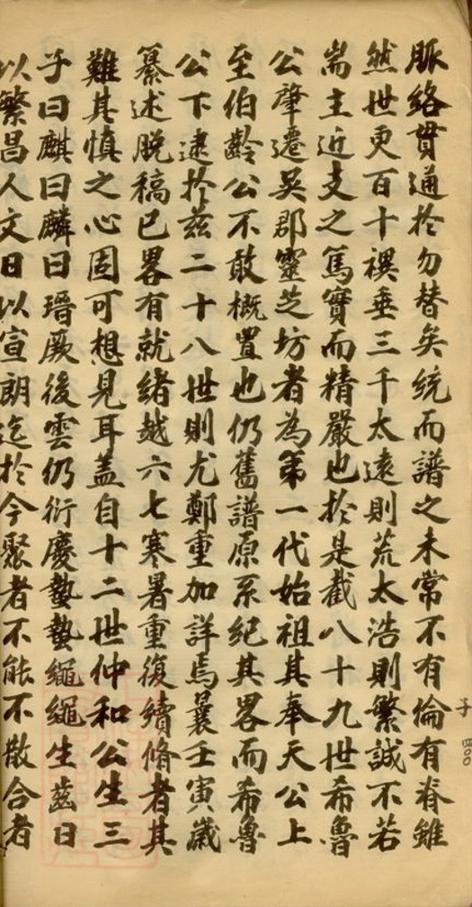 脈絡貫通於勿替矣統而譜之未常不有倫有脊雖
然世更百十禩垂三千太遠則荒太浩則繁誠不若
耑主近支之篤實而精嚴也於是截八十九世希魯
公肇遷吳郡靈芝坊者為第一代始祖其奉天公上
至伯齡公不敢概置也仍舊譜原系紀其畧而希魯
公下逮於茲二十八世則尤鄭重加詳焉曩壬寅歲
纂述脫稿已畧有就緒越六七寒暑重復續脩者其
難其慎之心固可想見耳蓋自十二世仲和公生三
子曰麒曰麟曰瑨厥後雲仍衍慶蟄蟄繩繩生齒日
以繁昌人文日以宣朗迄於今聚者不能不散合者
子 四〇〇